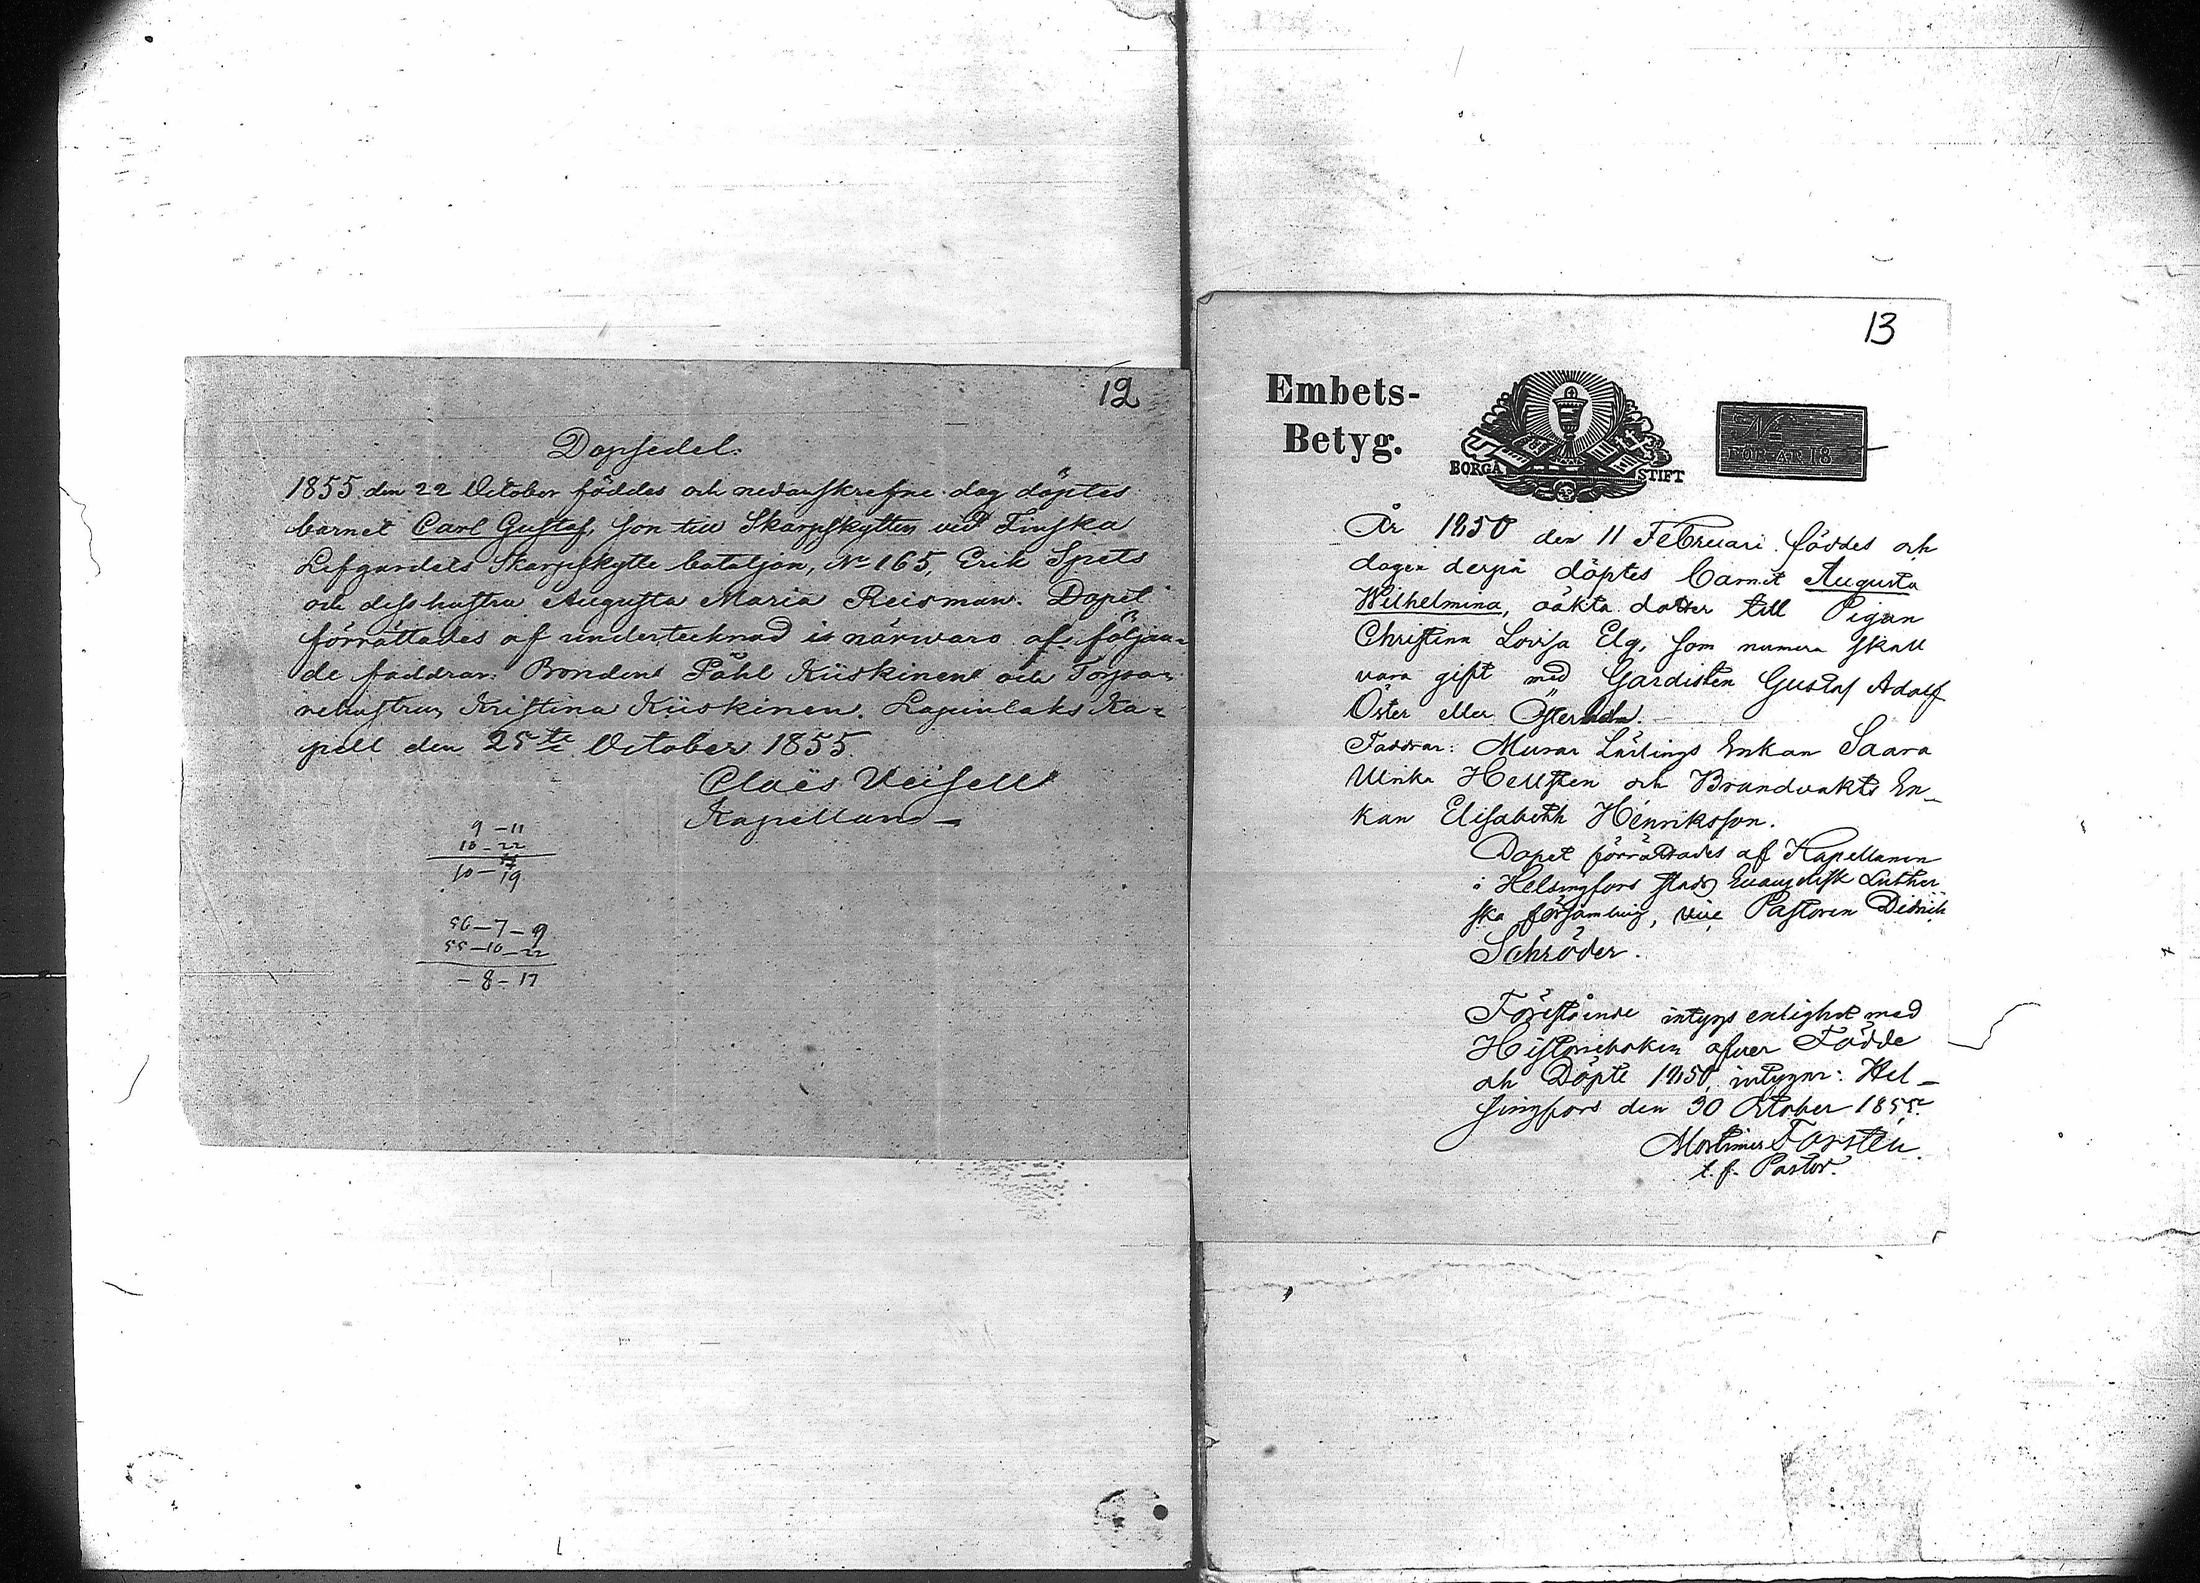 12
Dopsedel.
1855 den 22 October föddes och nedanskrefne dag döptes
barnet Carl Gustaf, son till Skarpskytten vid Finska
Lifgardets Skarpskytte bataljon, No 165, Erik Spets
och dess hustru Augusta Maria Reisman. Dopet
förrättades af undertecknad i närwaro af följan-
de faddrar: Bonden Påhl Kiiskinen och Torpa-
rehustrun Kristina Kiiskinen. Lapinlaks Ka-
pell den 25te October 1855.
Claës Veisell
Kapellan
9-11
10-22
10-19
56-7-9
55-10-22
-8-17
13
Embets-
Betyg.
BORGÅ STIFT
No
FÖR ÅR 18
År 1850 den 11 Februari föddes och
dagen derpå döptes barnet Augusta
Wilhelmina, oäkta dotter till Pigan
Christina Lovisa Elg, som numera skall
vara gift med Gardisten Gustaf Adolf
Öster eller Österholm.
Faddrar: Murar Lärlings Enkan Saara
Ulrika Hellsten och Brandvakts En-
kan Elisabeth Henriksson.
Dopet förrättades af Kapellanen
i Helsingfors stads Evangelisk Luther
ska församling, vice Pastoren Didrich
Schröder.
Förestående intygs enlighet med
Historieboken öfver Födde
och Döpte 1850, intygar: Hel-
singfors den 30 October 1855.
Mortimer Forstén.
t. f. Pastor.